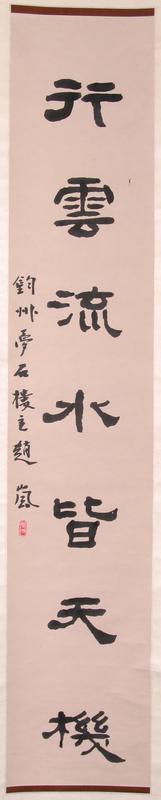 行雲流水皆天機
鈞州夢石樓主趙嵐